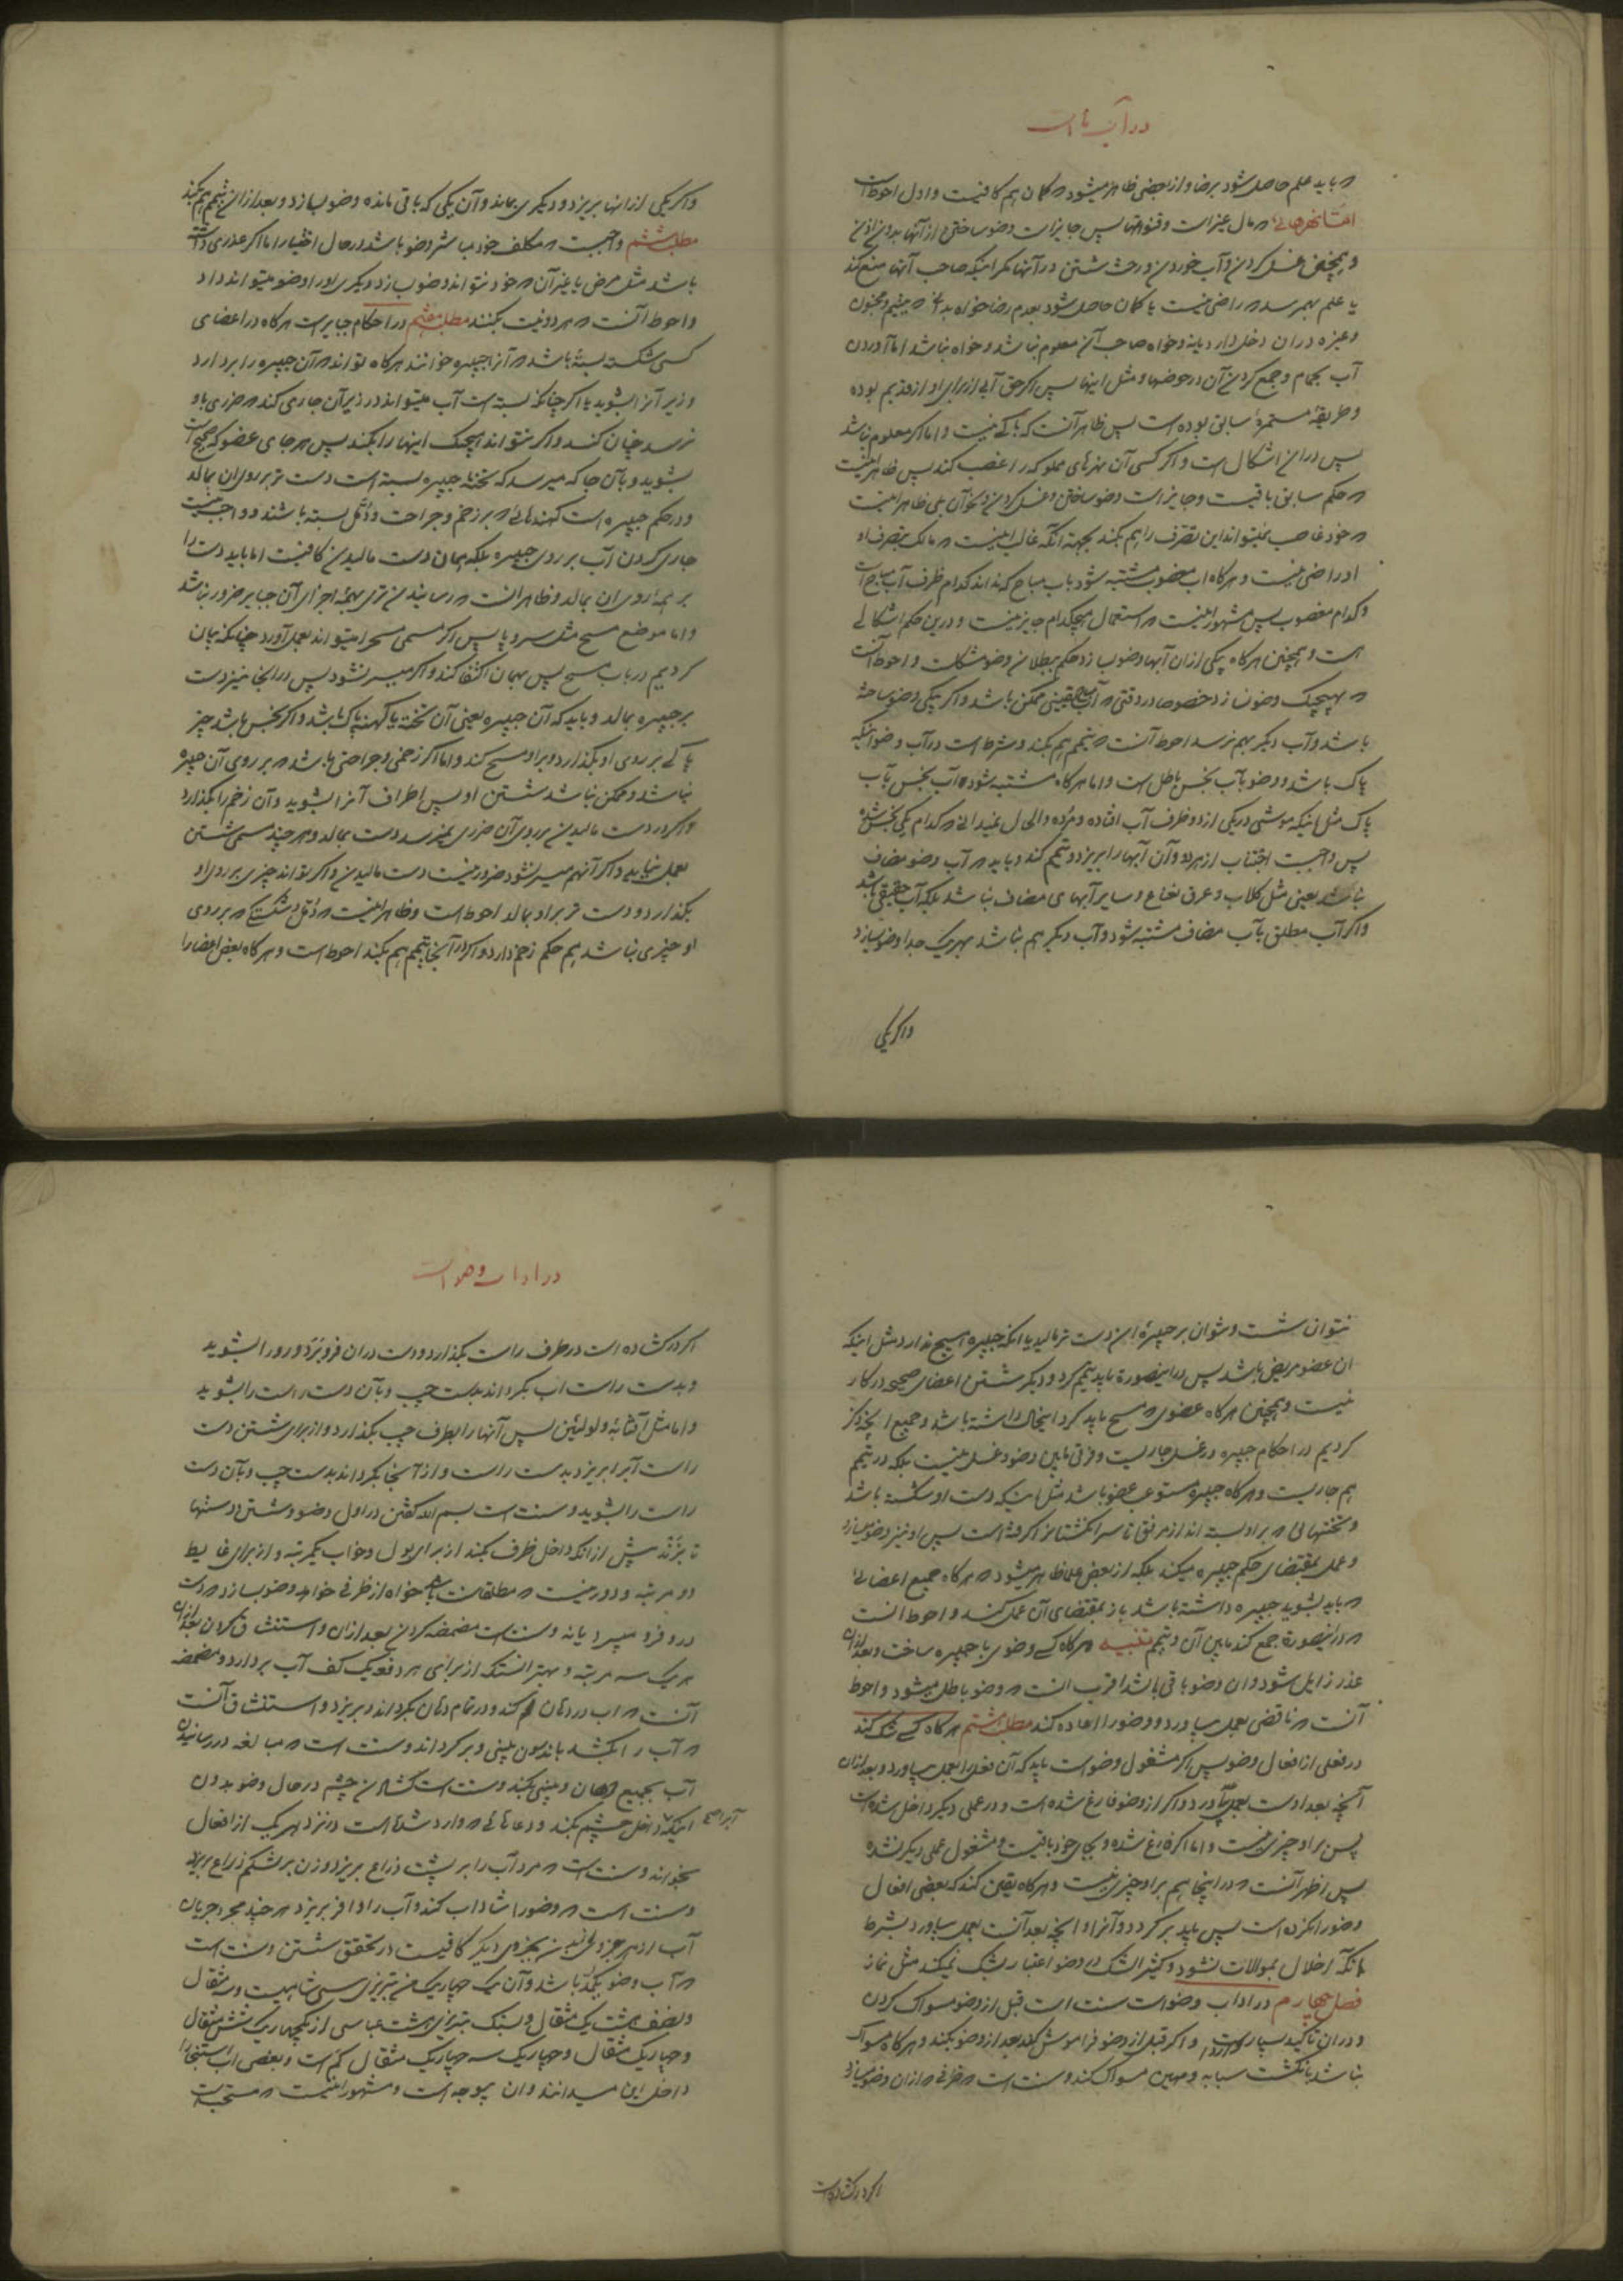 در آب است
که باید علم حاصل شود برضا و از بعضی ظاهر میشود که گمان هم کافیست و اول احوط است
اما نهرهائی که مال غیر است و قنوتها پس جایز است وضو ساختن از آنها بدون اذن
و همچنین غسل کردن و آب خوردن و رخت شستن در آنها مگر اینکه صاحب آنها منع کند
یا علم بهم رسد که راضی نیست یا گمان حاصل شود بعدم رضا خواه بدانی که یتیم و مجنون
و غیره در آن دخل دارد یا نه و خواه صاحب آن معلوم باشد و خواه نباشد اما آوردن
آب بحمام و جمع کردن آن در حوضها و مثل اینها پس اگر حق آبی از برای او از قدیم بوده
و طریقه مستمره سابق بوده است پس ظاهر آنست که باکی نیست و اما اگر معلوم نباشد
پس در این اشکال است و اگر کسی آن نهرهای مملوکه را غصب کند پس ظاهر اینست
که حکم سابق باقیست و جایز است وضو ساختن و غسل کردن و نحو آن بلی ظاهر اینست
که خود غاصب نمیتواند این تصرف را هم بکند بجهة آنکه غالب اینست که مالک بتصرف او
راضی نیست و هرگاه آب مغصوب مشتبه شود باب مباح که نداند کدام ظرف آب مباح است
و کدام مغصوب پس مشهور اینست که استعمال هیچکدام جایز نیست و در این حکم اشکالی
است و همچنین هرگاه بیکی از آن آبها وضو بسازد حکم ببطلان وضو مشکلست و احوط آنست
که بهیچیک وضو نسازد خصوصا در وقتی که آب یقینی ممکن باشد و اگر بیکی وضو ساخته
باشد و آب دیگر بهم نرسد احوط آنست که تیمم هم بکند و شرط است در آب وضو اینکه
پاک باشد و وضو بآب نجس باطل است و اما هرگاه مشتبه شود آب نجس بآب
پاک مثل اینکه موشی در یکی از دو ظرف آب افتاده و مرده و الحال نمیدانی که کدام یکی نجس شده
پس واجبست اجتناب از هر دو و آن آبها را بریزد و تیمم کند و باید که آب وضو مضاف
نباشد یعنی مثل گلاب و عرق نعناع و سایر آبهای مضاف نباشد بلکه آب حقیقی باشد
و اگر آب مطلق بآب مضاف مشتبه شود و آب دیگر هم نباشد بهریک جدا وضو بسازد
و اگر یکی
و اگر یکی از آنها بریزد و دیگری بماند و آن یکی که باقی مانده وضو بسازد و بعد از آن تیمم هم بکند
مطلب ششم واجبست که مکلف خود مباشر وضو باشد در حال اختیار اما اگر عذری داشته
باشد مثل مرض یا غیر آن که خود نتواند وضو بسازد دیگری او را وضو میتواند داد
و احوط آنست که هر دو نیت بکنند مطلب هفتم در احکام جبایر است هرگاه در اعضای
کسی شکسته بسته باشد که آنرا جبیره خوانند هرگاه تواند که آن جبیره را بردارد
و زیر آنرا بشوید یا اگر چنانکه بسته است آب میتواند در زیر آن جاری کند که ضرری باو
نرسد چنان کند و اگر نتواند هیچیک اینها را بکند پس هر جای عضو که صحیح است
بشوید و بآن جا که میرسد که تخته جبیره بسته است دست تر بر روی آن بمالد
و در حکم جبیره است کهنه هائی که بر زخم و جراحت و دمل بسته باشند و واجب نیست
جاری کردن آب بر روی جبیره بلکه همان دست مالیدن کافیست اما باید دست را
بر همه روی آن بمالد و ظاهر آنست که رسانیدن تری بهمه اجزای آن جبایر ضرور نباشد
و اما موضع مسح مثل سر و پا پس اگر مسمی مسح را میتواند بعمل آورد چنانکه بیان
کردیم در باب مسح پس بهمان اکتفا کند و اگر میسر نشود پس در آنجا نیز دست
بر جبیره بمالد و باید که آن جبیره یعنی آن تخته یا کهنه پاک باشد و اگر نجس باشد چیز
پاکی بر روی او بگذارد و بر او مسح کند و اما اگر زخمی و جراحتی باشد که بر روی آن جبیره
نباشد و ممکن نباشد شستن او پس اطراف آنرا بشوید و آن زخم را بگذارد
و اگر در دست مالیدن بر روی آن ضرری نمیرسد دست بمالد و هر چند مسمی شستن
بعمل نیاید و اگر آنهم میسر نشود ضرور نیست دست مالیدن و اگر تواند چیزی بر روی او
بگذارد و دست تر بر او بمالد احوط است و ظاهر اینست که دمل و شکستگی که بر روی
او چیزی نباشد هم حکم زخم دارد و اگر در آنجا تیمم هم بکند احوط است و هرگاه بعض اعضا را
نتوان شست و نتوان بر جبیره آن دست تر مالید یا آنکه جبیره هیچ ندارد مثل اینکه
آن عضو مریض باشد پس در اینصورة باید تیمم کرد و دیگر شستن اعضای صحیحه در کار
نیست و همچنین هرگاه عضوی که مسح باید کرد اینحال را داشته باشد و جمیع آنچه ذکر
کردیم در احکام جبیره در غسل جاریست و فرقی مابین وضو و غسل نیست بلکه در تیمم
هم جاریست و هرگاه جبیره مستوعب عضو باشد مثل اینکه دست او شکسته باشد
و تختهائی که بر او بسته اند از مرفق تا سر انگشتان را گرفته است پس او نیز وضو میسازد
و عمل بمقتضای حکم جبیره میکند بلکه از بعض علما ظاهر میشود که هرگاه جمیع اعضائی
که باید بشوید جبیره داشته باشد باز بمقتضای آن عمل کند و احوط آنست
که در اینصورة جمع کند مابین آن و تیمم تنبیه هرگاه کسی وضوی با جبیره ساخت و بعد از آن
عذر زایل شود و آن وضو باقی باشد اقرب آنست که وضو باطل میشود و احوط
آنست که ناقضی بعمل بیاورد و وضو را اعاده کند مطلب هشتم هرگاه کسی شک کند
در فعلی از افعال وضو پس اگر مشغول وضو است باید که آن فعل را بعمل بیاورد و بعد از آن
آنچه بعد اوست بعمل بیاورد و اگر از وضو فارغ شده است و در عملی دیگر داخل شده است
پس بر او چیزی نیست و اما اگر فارغ شده و بجای خود باقیست و مشغول عملی دیگر نشده
پس اظهر آنست که در اینجا هم بر او چیزی نیست و هرگاه یقین کند که بعضی افعال
وضو را نکرده است پس باید برگردد و آنرا و آنچه بعد آنست بعمل بیاورد بشرط
آنکه اخلال بموالات نشود و کثیر الشک در وضو اعتبار بشک نمیکند مثل نماز
فصل چهارم در آداب وضو است سنت است قبل از وضو مسواک کردن
و در آن تاکید بسیار است و اگر قبل از وضو فراموش کند بعد از وضو بکند و هرگاه مسواک
نباشد بانگشت سبابه و مهین مسواک کند و سنت است که ظرفی که از آن وضو میسازد
اگر در گشاده است
در آداب وضو است
اگر در گشاده است در طرف راست بگذارد و دست در آن فرو برد و رو را بشوید
و بدست راست آب بگرداند بدست چپ و بآن دست راست را بشوید
و اما مثل آفتابه و لولئین پس آنها را بطرف چپ بگذارد و از برای شستن دست
راست آبرا بریزد بدست راست و از آنجا بگرداند بدست چپ و بآن دست
راست را بشوید و سنت است بسم الله گفتن در اول وضو و شستن دستها
تا بزند پیش از آنکه داخل ظرف بکند از برای بول و خواب یکمرتبه و از برای غایط
دو مرتبه و دور نیست که مطلقا سنت باشد خواه از ظرفی خواهد وضو بسازد که دست
در او فرو میبرد یا نه و سنت است مضمضه کردن بعد از آن و استنشاق کردن بعد از آن
هریک سه مرتبه و بهتر آنستکه از برای هر دفعه یک کف آب بردارد و مضمضه
آنست که آب در دهان کند و در تمام دهان بگرداند و بریزد و استنشاق آنست
که آب را بکشد باندرون بینی و برگرداند و سنت است که مبالغه در رسانیدن
آب بجمیع دهان و بینی بکند و سنت است گشادن چشم در حال وضو بدون
اینکه داخل چشم بکند و دعاهائی که وارد شده است در نزد هریک از افعال
بخواند و سنت است که مرد آب را بر پشت ذراع بریزد و زن بر شکم ذراع بریزد
و سنت است که وضو را شاداب کند و آب را وافر بریزد هر چند مجرد جریان
آب از هر جزوی بجزوی دیگر کافیست در تحقق شستن و سنت است
که آب وضو یکمد باشد و آن یک چهاریک من تبریزی سی شاهیست و سه مثقال
و نصف هشت یک مثقال و بسنگ تبریزی هشت عباسی از یکچهاریک شش مثقال
و چهاریک مثقال و چهاریک سه چهاریک مثقال کم است و بعضی آب استنجا را
داخل این میدانند و آن بیوجه است و مشهور اینست که مستحب است